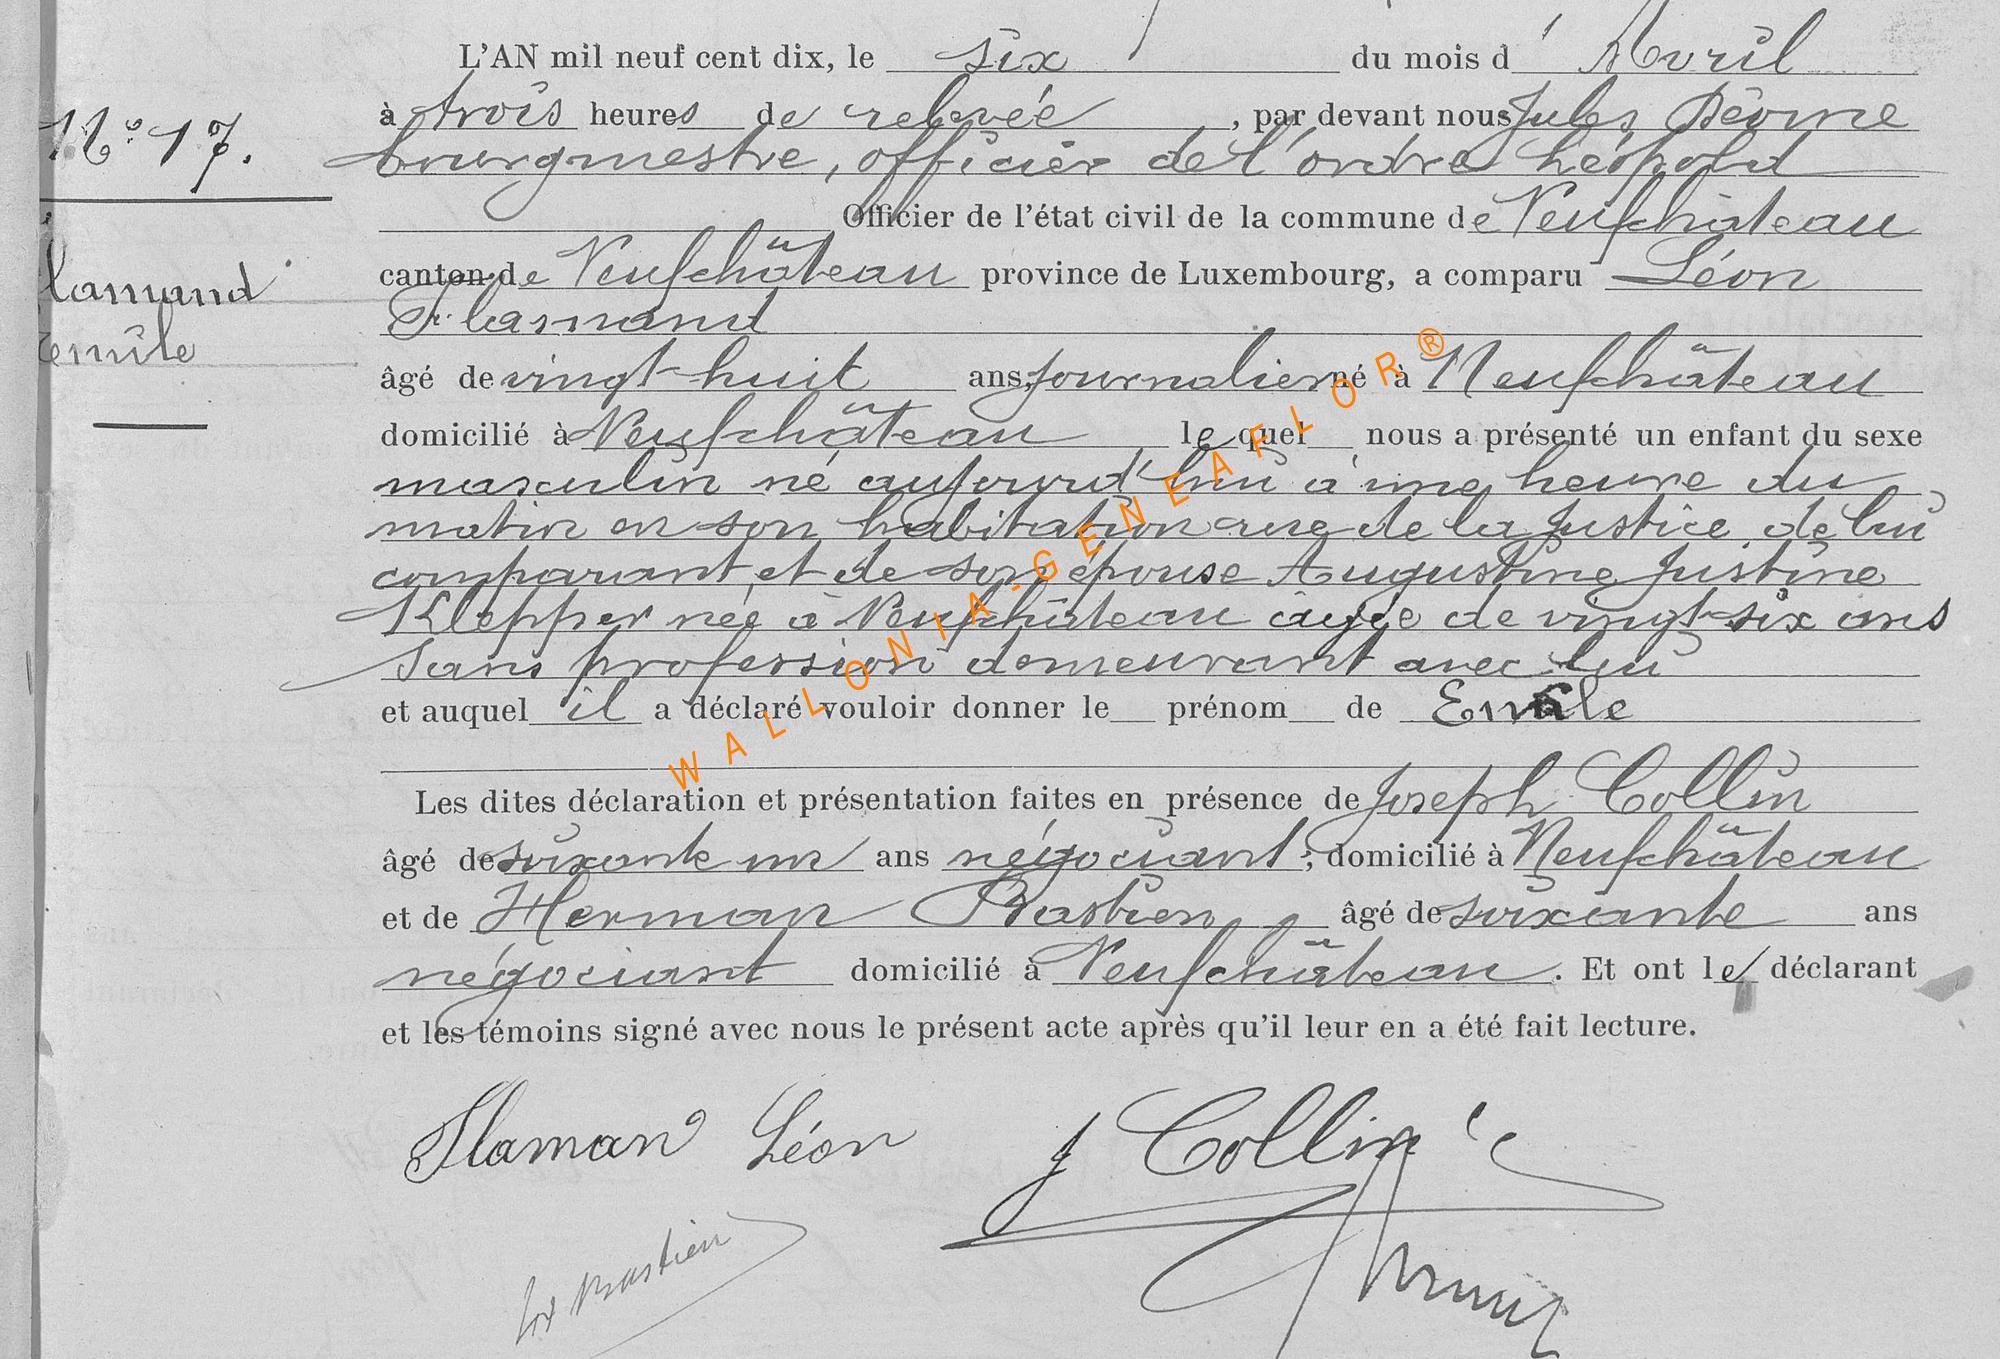 L'AN mil neuf cent dix, le six du mois d'Avril
N° 17.
à trois heures de relevée, par devant nous Jules
bourgmestre, officier de l'ordre Léopold
Officier de l'état civil de la commune de Neufchâteau
lamand
canton de Neufchâteau province de Luxembourg, a comparu Léon
Flamand
emile
âgé de vingt-huit ans, journalier né à Neufchâteau
domicilié à Neufchâteau lequel nous a présenté un enfant du sexe
masculin né aujourd'hui à une heure du
matin en son habitation rue de la Justice, de lui
comparant et de son épouse Augustine Justine
Klepper née à Neufchâteau âgée de vingt-six ans
sans profession demeurant avec lui
et auquel il a déclaré vouloir donner le prénom de Emile
Les dites déclaration et présentation faites en présence de Joseph Collin
âgé de soixante un ans négociant, domicilié à Neufchâteau
et de Herman Bastien, âgé de soixante ans
négociant domicilié à Neufchâteau. Et ont le déclarant
et les témoins signé avec nous le présent acte après qu'il leur en a été fait lecture.
Flaman Léon J Collin
Bastien
WALLONIA-GENEAFLOR®